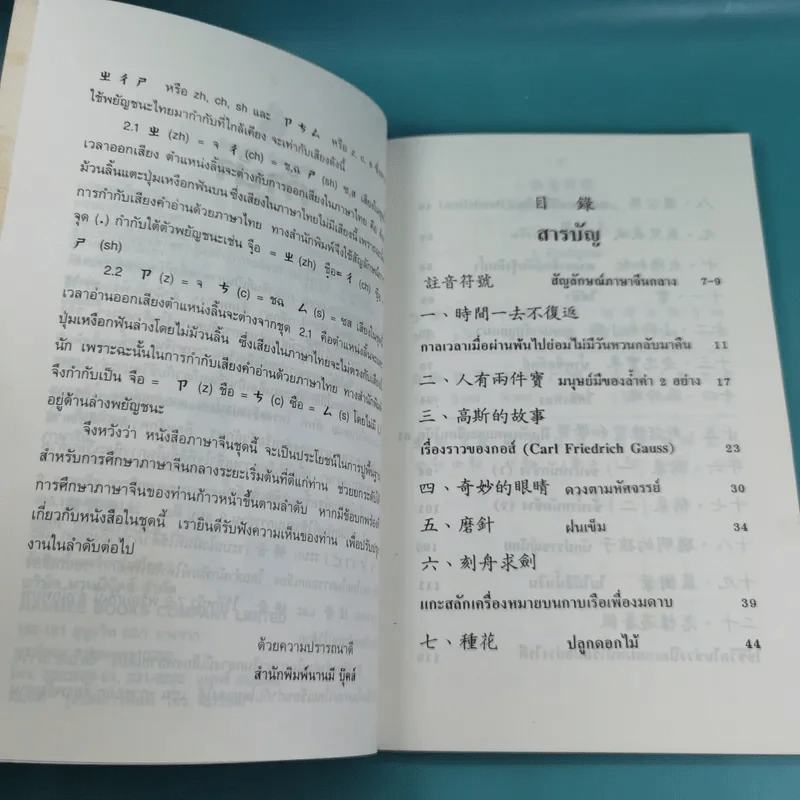 ㄓ ㄔ ㄕ หรือ zh, ch, sh และ ㄗ ㄘ ㄙ หรือ z, c, s
ใช้พยัญชนะไทยมากำกับที่ใกล้เคียง จะเท่ากับเสียงดังนี้
2.1 ㄓ (zh) = จ ㄔ (ch) = ช,ฉ ㄕ (sh) = ช,ส
เวลาออกเสียง ตำแหน่งลิ้นจะต่างกับการออกเสียงในภาษาไทย คือ
ม้วนลิ้นแตะปุ่มเหงือกฟันบน ซึ่งเสียงในภาษาไทยไม่มีเสียงนี้
การกำกับเสียงคำอ่านด้วยภาษาไทย ทางสำนักพิมพ์จึงใช้สัญลักษณ์
จุด (.) กำกับใต้ตัวพยัญชนะเช่น จฺือ = ㄓ (zh) ชฺือ= ㄔ (ch)
ㄕ (sh)
2.2 ㄗ (z) = จ ㄘ (c) = ชฉ ㄙ (s) = ซส
เวลาอ่านออกเสียงตำแหน่งลิ้นจะต่างจากชุด 2.1 คือตำแหน่งลิ้น
ปุ่มเหงือกฟันล่างโดยไม่ม้วนลิ้น ซึ่งเสียงในภาษาไทยจะไม่ตรงกับเสียง
นัก เพราะฉะนั้นในการกำกับเสียงคำอ่านด้วยภาษาไทย ทางสำนักพิมพ์
จึงกำกับเป็น จือ = ㄗ (z) ชือ = ㄘ (c) ซือ = ㄙ (s) โดยไม่มี
อยู่ด้านล่างพยัญชนะ
จึงหวังว่า หนังสือภาษาจีนชุดนี้ จะเป็นประโยชน์ในการปูพื้นฐาน
สำหรับการศึกษาภาษาจีนกลางระยะเริ่มต้นที่ดีแก่ท่าน ช่วยยกระดับ
การศึกษาภาษาจีนของท่านก้าวหน้าขึ้นตามลำดับ หากมีข้อบกพร่อง
เกี่ยวกับหนังสือในชุดนี้ เรายินดีรับฟังความเห็นของท่าน เพื่อปรับปรุง
งานในลำดับต่อไป
ด้วยความปรารถนาดี
สำนักพิมพ์นานมี บุ๊คส์
目 錄
สารบัญ
註音符號 สัญลักษณ์ภาษาจีนกลาง 7-9
一、時間一去不復返
กาลเวลาเมื่อผ่านพ้นไปย่อมไม่มีวันหวนกลับมาคืน 11
二、人有兩件寶 มนุษย์มีของล้ำค่า 2 อย่าง 17
三、高斯的故事
เรื่องราวของกอส์ (Carl Friedrich Gauss) 23
四、奇妙的眼睛 ดวงตามหัศจรรย์ 30
五、磨針 ฝนเข็ม 34
六、刻舟求劍
แกะสลักเครื่องหมายบนกาบเรือเพื่องมดาบ 39
七、種花 ปลูกดอกไม้ 44